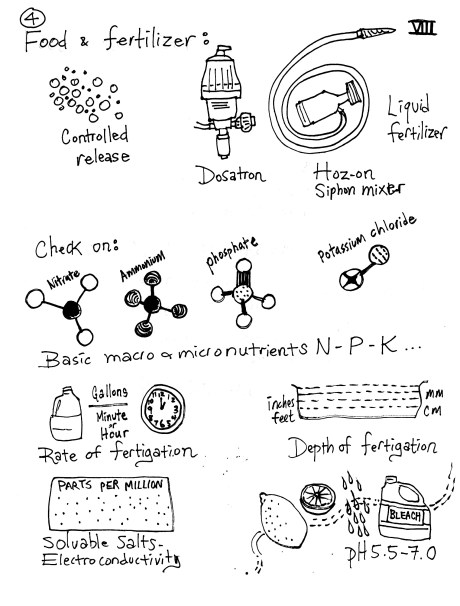 4
VIII
Food & fertilizer:
Controlled
release
Dosatron
Hoz-on
Siphon mixter
Liquid
fertilizer
Check on:
Nitrate
Ammonium
phosphate
Potassium chloride
Basic macro & micronutrients N-P-K...
Gallons
Minute
or
Hour
Rate of fertigation
inches
feet
mm
cm
Depth of fertigation
PARTS PER MILLION
Soluable Salts-
Electroconductivity
BLEACH
pH 5.5-7.0